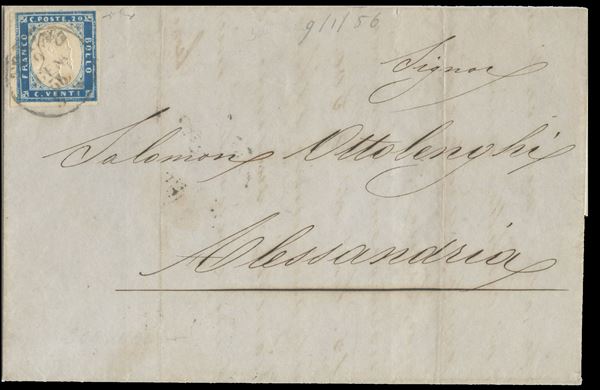 C. POSTE. 20
FRANCO
BOLLO
C. VENTI
9/1/56
Signor
Salomon Ottolenghi
Alessandria